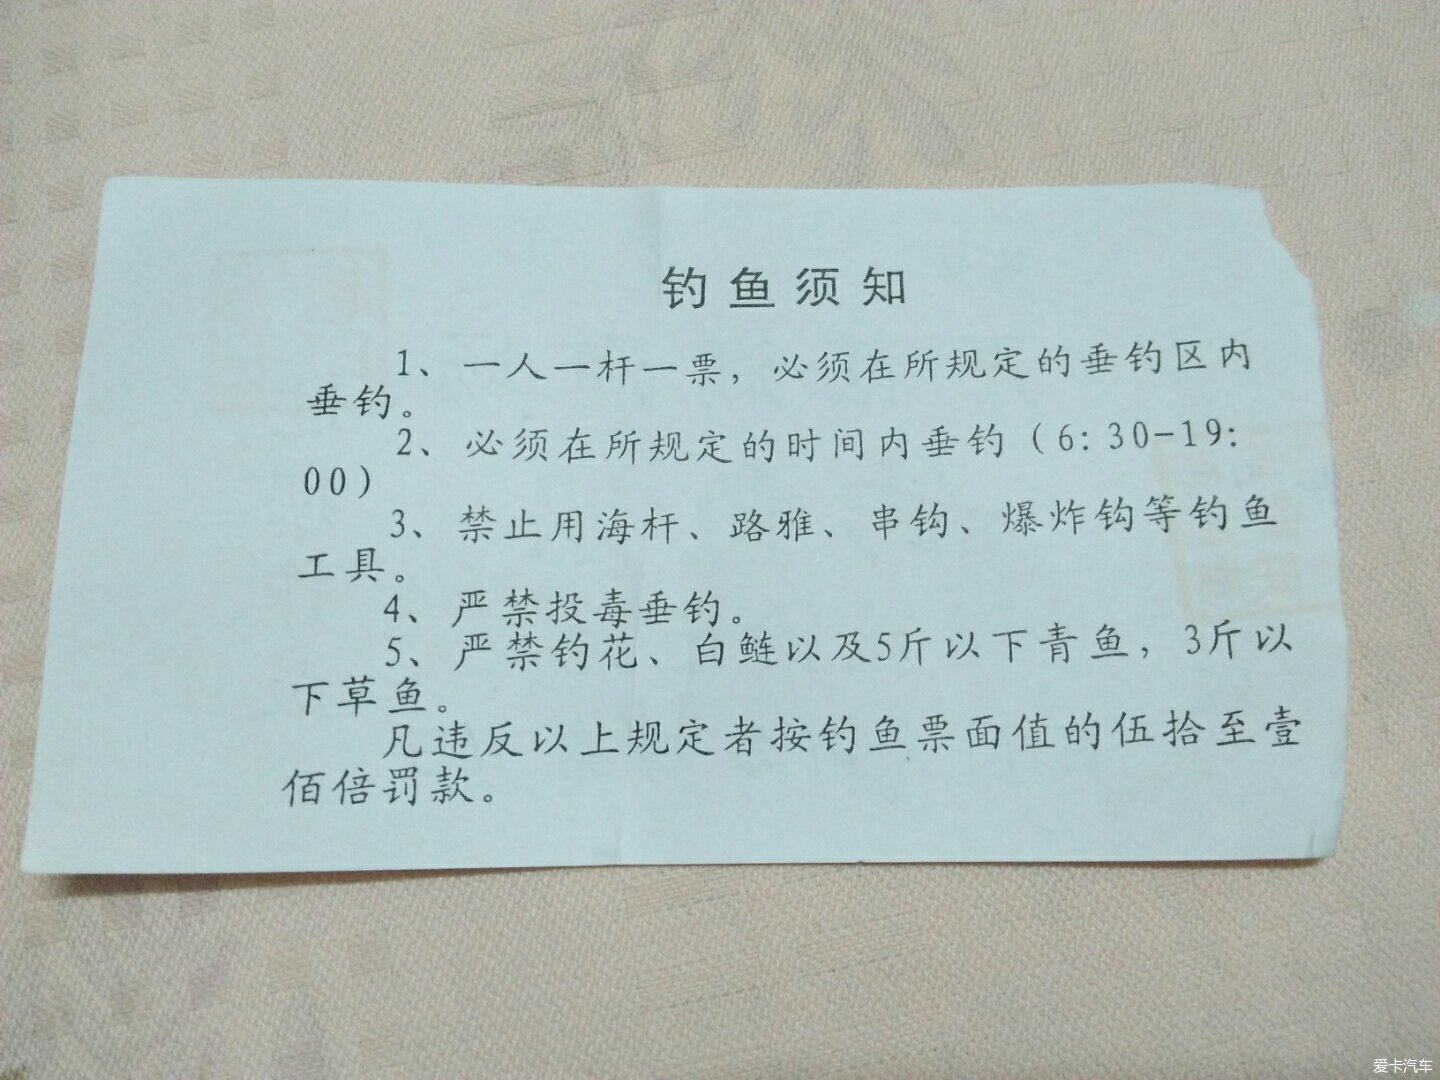 钓鱼须知
1、一人一杆一票，必须在所规定的垂钓区内
垂钓。
2、必须在所规定的时间内垂钓（6：30-19：
00）
3、禁止用海杆、路雅、串钩、爆炸钩等钓鱼
工具。
4、严禁投毒垂钓。
5、严禁钓花、白鲢以及5斤以下青鱼，3斤以
下草鱼。
凡违反以上规定者按钓鱼票面值的伍拾至壹
佰倍罚款。
爱卡汽车